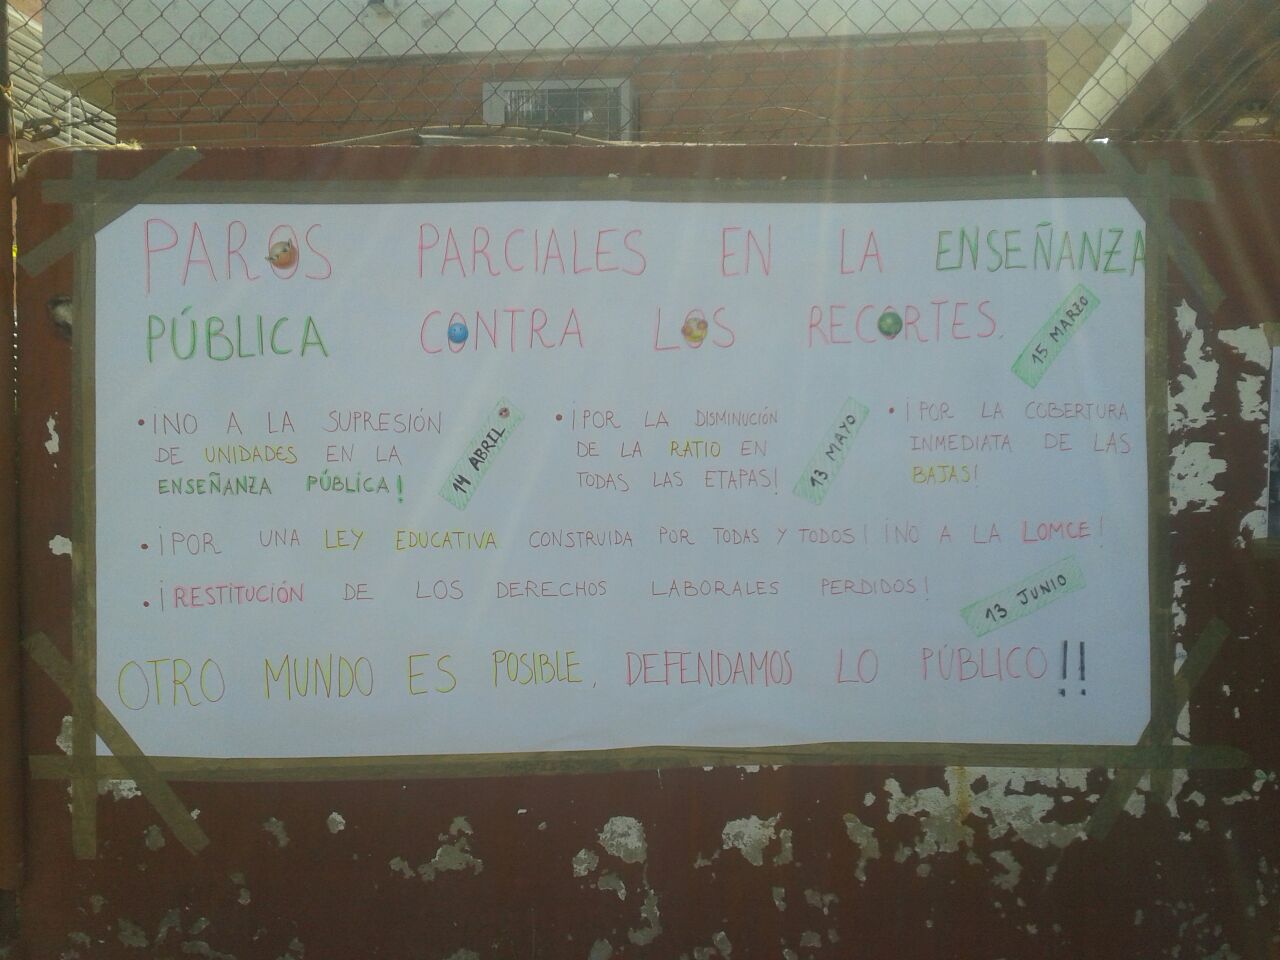 PAROS PARCIALES EN LA ENSEÑANZA
PÚBLICA CONTRA LOS RECORTES.
15 MARZO
• ¡NO A LA SUPRESIÓN
DE UNIDADES EN LA
ENSEÑANZA PÚBLICA!
14 ABRIL
• ¡POR LA DISMINUCIÓN
DE LA RATIO EN
TODAS LAS ETAPAS!
13 MAYO
• ¡POR LA COBERTURA
INMEDIATA DE LAS
BAJAS!
• ¡POR UNA LEY EDUCATIVA CONSTRUIDA POR TODAS Y TODOS! ¡NO A LA LOMCE!
• ¡RESTITUCIÓN DE LOS DERECHOS LABORALES PERDIDOS!
13 JUNIO
OTRO MUNDO ES POSIBLE, DEFENDAMOS LO PÚBLICO!!